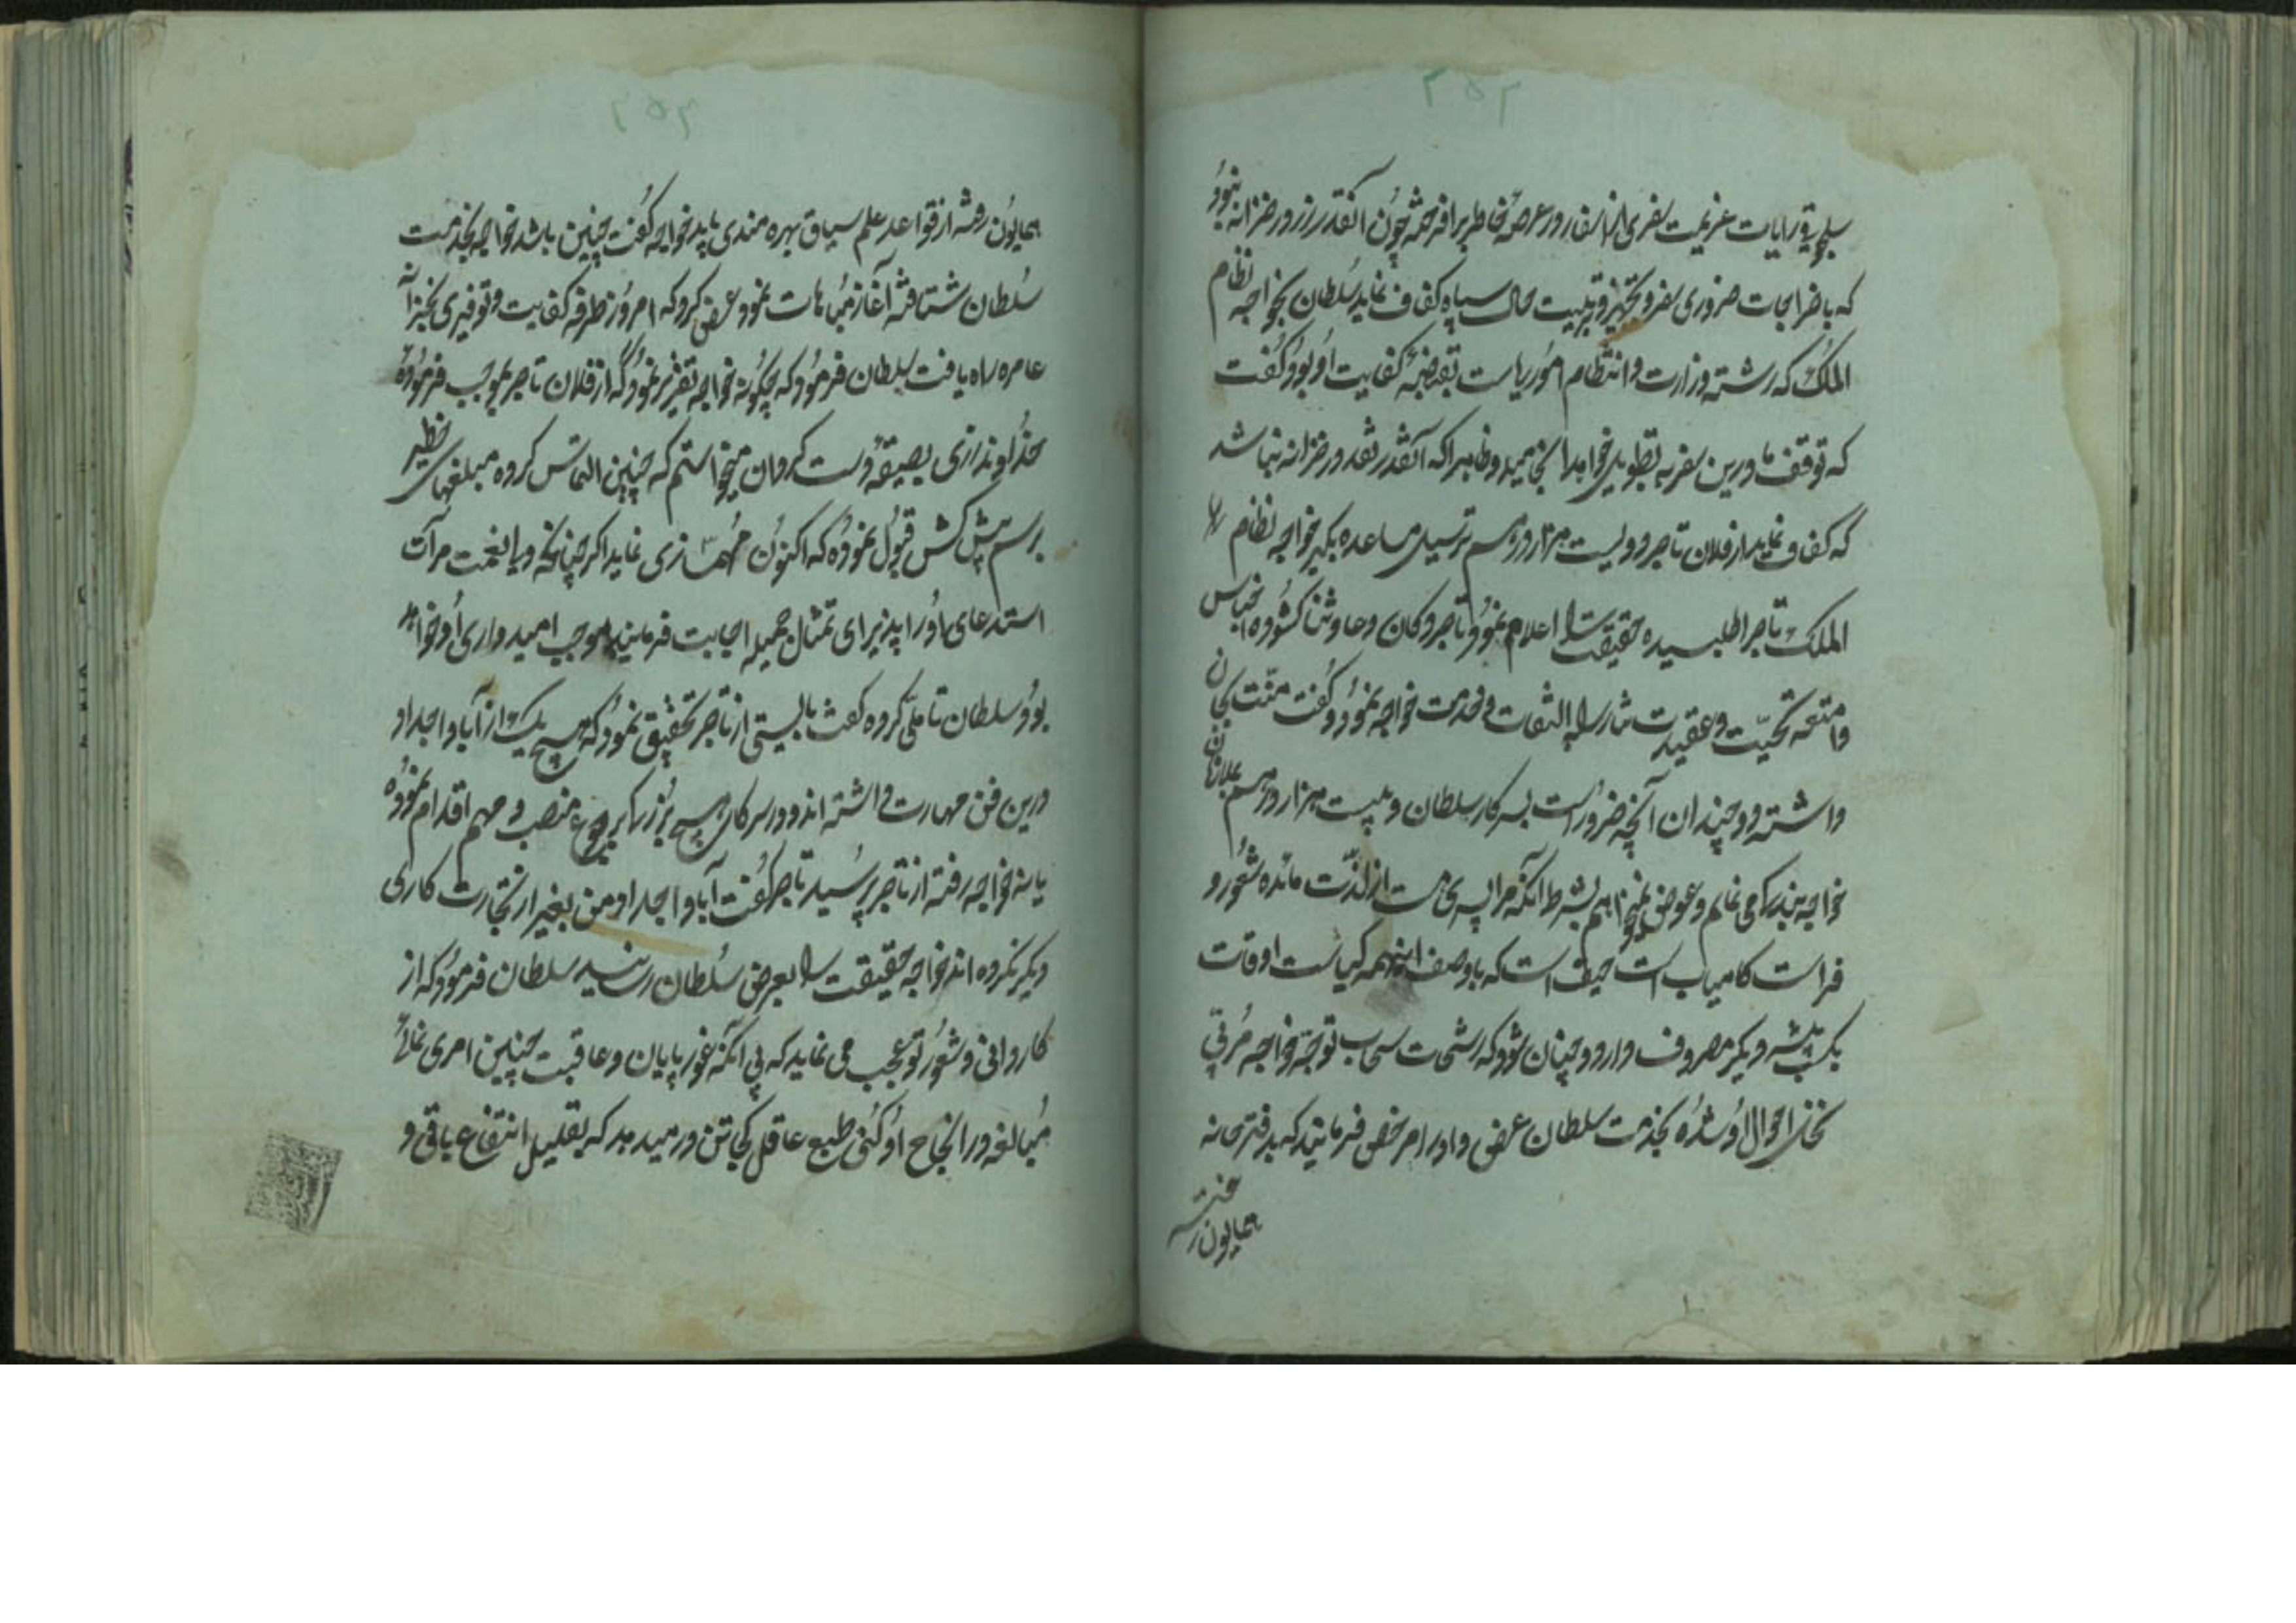 سلجوقی رایات عزیمت سفری از اسفار در عرصهٔ خاطر برافرخته چون آنقدر زر در خزانه نبود
که باخراجات ضروری سفر و تجهیز و تربیت حال سپاه کفاف نماید سلطان بخواجه نظام
الملک که رشته وزارت و انتظام امور ریاست بقبضهٔ کفایت او بود گفت
که توقف ما درین سفر به تطویل خواهد انجامید و ظاهرا که آنقدر نقد در خزانه نباشد
که کفاف نماید از فلان تاجر دویست هزار درهم برسبیل مساعده بگیر خواجه نظام
الملک تاجر را طلبیده حقیقت را اعلام نمود و تاجر دکان دعا و ثنا کشوده اجناس
وامتعه تحیت و عقیدت نثار التفات وخدمت خواجه نمود و گفت منت بجان
داشته دوچندان آنچه ضرور است بسرکار سلطان و بیست هزار درهم بملازمان
خواجه بندگی می نمایم و عوض نمیخواهم بشرط آنکه مرا پسری هست از لذت مائده شعور و
فراست کامیاب است حیف است که باوصف اینهمه کیاست اوقات
بکسب پیشه دیگر مصروف دارد و چنان شود که رشحات سحاب توجه خواجه مربی
نخل احوال او شده بخدمت سلطان عرض و او را مرخص فرمایند که بدفترخانه
همایون رفته
همایون رفته از قواعد علم سیاق بهره مندی یابد خواجه گفت چنین باشد خواجه بخدمت
سلطان شتافته آغاز مباهات نمود و عرض کرد که امروز طرفه کفایت و توفیری بخزانه
عامره راه یافت سلطان فرمود که چگونه خواجه تقریر نمود که از فلان تاجر بموجب فرموده
خداوندزری بصیغهٔ دست گردان میخواستم که چنین التماس کرده مبلغهای خطیر
برسم پیش کش قبول نموده که اکنون مهمسازی نماید اگر چنانکه ویانعمت مرآت
استدعای اورا پذیرای تمثال جمیله اجابت فرمایند موجب امیدواری او خواهد
بود سلطان تاملی کرده گفت بایستی از تاجر تحقیق نمود که هیچ یک از آبا و اجداد او
درین فن مهارت داشته اند و در سرکار هیچ بزرگ بهیچ منصب و مهم اقدام نموده
یا نه خواجه رفته از تاجر پرسید تاجر گفت آبا و اجداد من بغیر از تجارت کاری
دیگر نکرده اند خواجه حقیقت را بعرض سلطان رسانید سلطان فرمود که از
کاردانی و شعور تو عجب می نماید که بی آنکه غور پایان و عاقبت چنین امری نمائی
مبالغه در انجاح او کنی طبع عاقل کجا تن در میدهد که بقلیل انتفاع باقی و